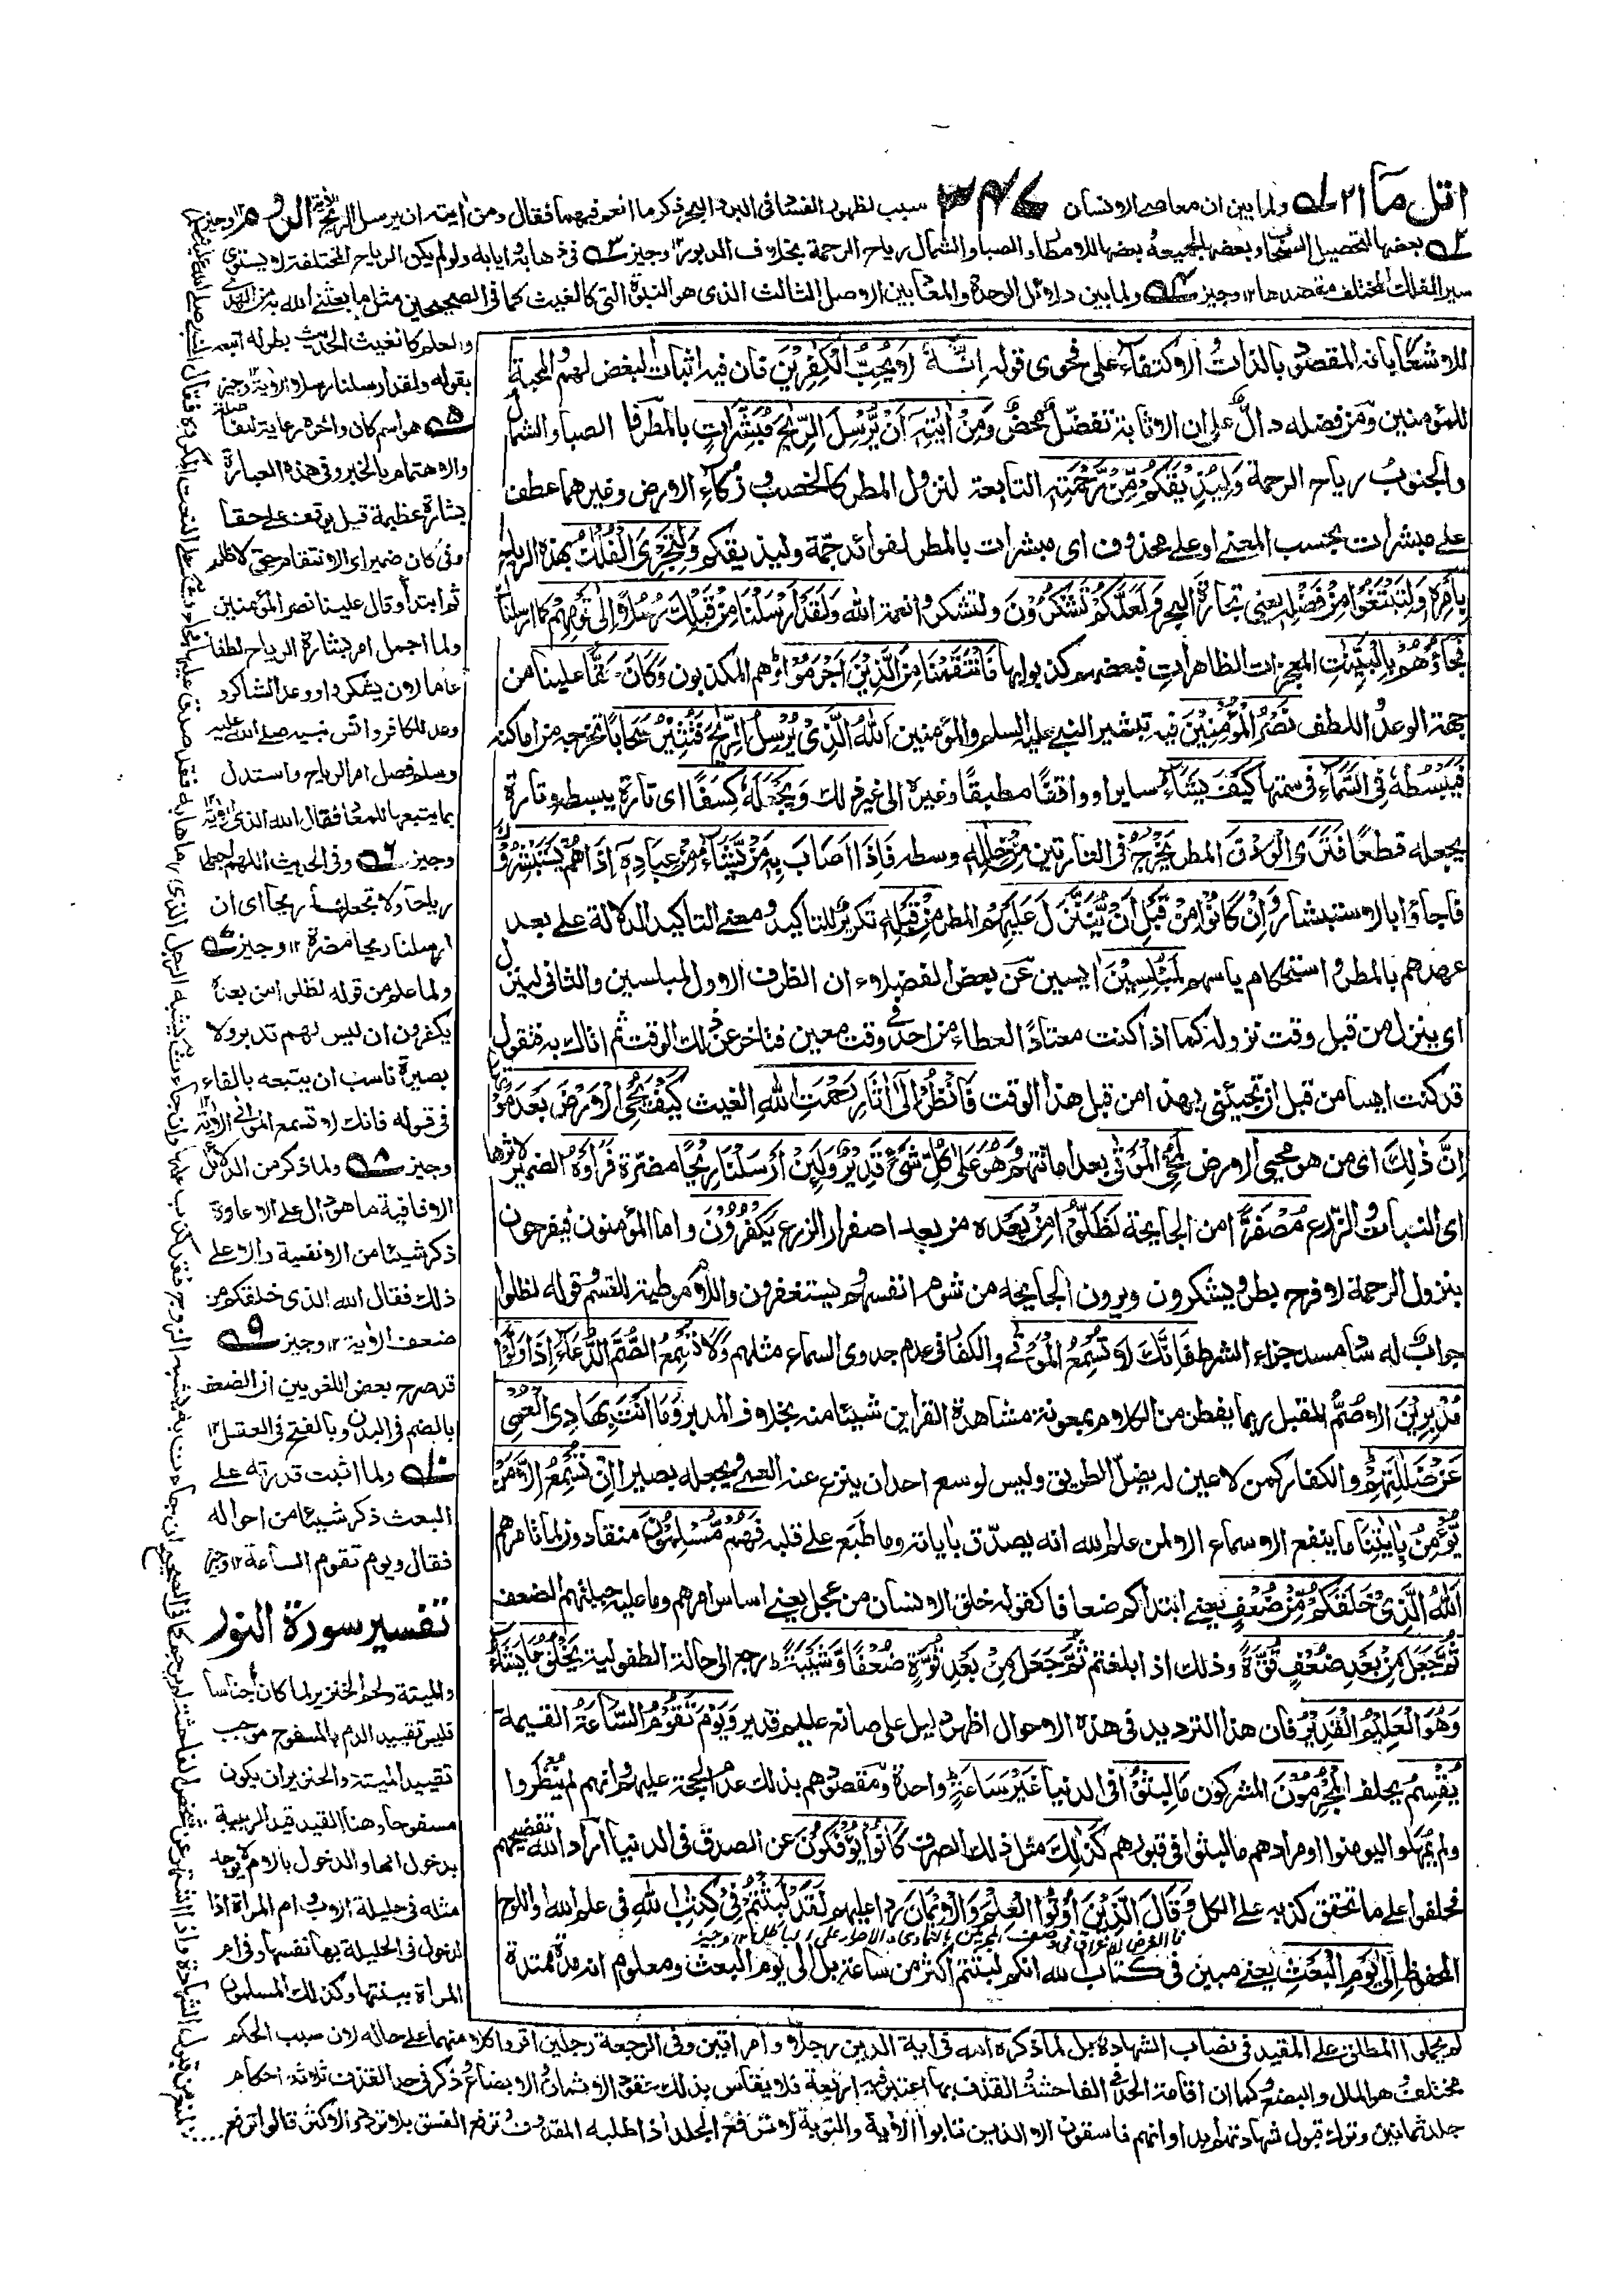 اتل ما ٢١ ولما بين ان معاصى الانسان ٣٤٧ سبب لظهور الفساد فى البر والبحر ذكر ما انعم فيهما فقال ومن ايته ان يرسل الريح الاية الروم ١٢ وجيز
بعضها لتحصيل السحاب وبعضها لجميعه بعضها للامطار والصبا والشمال رياح الرحمة بخلاف الدبور ١٢ وجيز فى ذهابه وايابه ولو لم يكن الرياح المختلفة لا يستوى
سير الفلك المختلف مقصدها ١٢ وجيز ولما بين دلائل الوحدة والمعاد بين الاصل الثالث الذى هو النبوة التى كالغيث كما فى الصحيحين مثل ما بعثنى الله به من الهدى
للاشعار بانه المقصود بالذات والاكتفاء على فحوى قوله اِنَّهٗ لَا يُحِبُّ الْكٰفِرِيْنَ فان فيه اثبات البغض لهم والمحبة
للمؤمنين ومن فضله دال على ان الاثابة تفضل محض وَمِنْ اٰيٰتِهٖ اَنْ يُّرْسِلَ الرِّيَاحَ مُبَشِّرٰتٍ بالمطر فا الصبا والشمال
والجنوب رياح الرحمة وَلِيُذِيْقَكُمْ مِّنْ رَّحْمَتِهٖ التابعة لنزول المطر كالخصب وزكاء الارض وغيرهما عطف
على مبشرات بحسب المعنى او على محذوف اى مبشرات بالمطر لفوائد جمة وليذيقكم وَلِتَجْرِىَ الْفُلْكُ بهذه الرياح
بِاَمْرِهٖ وَلِتَبْتَغُوْا مِنْ فَضْلِهٖ يعنى تجارة البحر وَلَعَلَّكُمْ تَشْكُرُوْنَ ولتشكروا نعمة الله وَلَقَدْ اَرْسَلْنَا مِنْ قَبْلِكَ رُسُلًا اِلٰى قَوْمِهِمْ كما ارسلناك
فَجَآءُوْهُمْ بِالْبَيِّنٰتِ المعجزات الظاهرات فبعضهم كذبوا بها فَانْتَقَمْنَا مِنَ الَّذِيْنَ اَجْرَمُوْا وهم المكذبون وَكَانَ حَقًّا علينا من
جهة الوعد واللطف نَصْرُ الْمُؤْمِنِيْنَ فيه تبشير النبى عليه السلام والمؤمنين اَللّٰهُ الَّذِىْ يُرْسِلُ الرِّيٰحَ فَتُثِيْرُ سَحَابًا تخرجه من اماكنه
فَيَبْسُطُهٗ فِى السَّمَآءِ فى سمتها كَيْفَ يَشَآءُ سايرا وواقفا مطبقا وغيره الى غير ذلك وَيَجْعَلُهٗ كِسَفًا اى تارة يبسطه وتارة
يجعله قطعًا فَتَرَى الْوَدْقَ المطر يَخْرُجُ فى التارتين مِنْ خِلٰلِهٖ وسطه فَاِذَا اَصَابَ بِهٖ مَنْ يَّشَآءُ مِنْ عِبَادِهٖ اِذَا هُمْ يَسْتَبْشِرُوْنَ
فاجاؤا بالاستبشار وَاِنْ كَانُوْا مِنْ قَبْلِ اَنْ يُّنَزَّلَ عَلَيْهِمْ المطر مِنْ قَبْلِهٖ تكرير للتاكيد ومعنى التاكيد الدلالة على بعد
عهدهم بالمطر واستحكام ياسهم لَمُبْلِسِيْنَ ايسين عن بعض الفضلاء ان الظرف الاول لمبلسين والثانى لينزل
اى ينزل من قبل وقت نزوله كما اذا كنت معتادا لعطاء من احد فى وقت معين فتاخر عن ذلك الوقت ثم اتاك به فتقول
قد كنت ايسا من قبل ان تجيئنى بهذا من قبل هذا الوقت فَانْظُرْ اِلٰى اٰثَارِ رَحْمَتِ اللّٰهِ الغيث كَيْفَ يُحْىِ الْاَرْضَ بَعْدَ مَوْتِهَا
اِنَّ ذٰلِكَ اى من هو محيى الارض لَمُحْىِ الْمَوْتٰى بعد اماتتهم وَهُوَ عَلٰى كُلِّ شَىْءٍ قَدِيْرٌ وَلَئِنْ اَرْسَلْنَا رِيْحًا مضرة فَرَاَوْهُ الضمير لاثرها
اى النبات والزرع مُصْفَرًّا من الجايحة لَظَلُّوْا مِنْ بَعْدِهٖ من بعد اصفرار الزرع يَكْفُرُوْنَ واما المؤمنون فيفرحون
بنزول الرحمة لا فرح بطر ويشكرون ويرون الجايحة من شوم انفسهم ويستغفرون واللام موطئة للقسم قوله لظلوا
جواب له ساد مسد جزاء الشرط فَاِنَّكَ لَا تُسْمِعُ الْمَوْتٰى والكفار فى عدم جدوى السماع مثلهم وَلَا تُسْمِعُ الصُّمَّ الدُّعَآءَ اِذَا وَلَّوْا
مُدْبِرِيْنَ الاصم المقبل ربما يفطن من الكلام بمعونة مشاهدة القراين شيئا منه بخلاف المدبر وَمَا اَنْتَ بِهٰدِ الْعُمْىِ
عَنْ ضَلٰلَتِهِمْ والكفار كمن لا عين له يضل الطريق وليس لوسع احد ان ينزع عنه العمى ويجعله بصيرا اِنْ تُسْمِعُ اِلَّا مَنْ
يُّؤْمِنُ بِاٰيٰتِنَا ما ينفع الاسماع الا لمن علم الله انه يصدق باياته وما طبع على قلبه فَهُمْ مُّسْلِمُوْنَ منقادون لما تامرهم
اَللّٰهُ الَّذِىْ خَلَقَكُمْ مِّنْ ضُعْفٍ يعنى ابتداكم ضعافا كقوله خلق الانسان من عجل يعنى اساس امرهم وما عليه جبلتهم الضعف
ثُمَّ جَعَلَ مِنْ بَعْدِ ضُعْفٍ قُوَّةً وذلك اذا بلغتم ثُمَّ جَعَلَ مِنْ بَعْدِ قُوَّةٍ ضُعْفًا وَّشَيْبَةً رجع الى حالة الطفولية يَخْلُقُ مَا يَشَآءُ
وَهُوَ الْعَلِيْمُ الْقَدِيْرُ فان هذا الترديد فى هذه الاحوال اظهر دليل على صانع عليم قدير وَيَوْمَ تَقُوْمُ السَّاعَةُ القيمة
يُقْسِمُ يحلف الْمُجْرِمُوْنَ المشركون مَا لَبِثُوْا فى الدنيا غَيْرَ سَاعَةٍ واحدة ومقصودهم بذلك عدم الحجة عليهم وانهم لم ينظروا
ولم يمهلوا ليومنوا او مرادهم ما لبثوا فى قبورهم كَذٰلِكَ مثل ذلك الصرف كَانُوْا يُؤْفَكُوْنَ عن الصدق فى الدنيا اراد الله تفضيحهم
فحلفوا على ما تحقق كذبه على الكل وَقَالَ الَّذِيْنَ اُوْتُوا الْعِلْمَ وَالْاِيْمَانَ ردا عليهم لَقَدْ لَبِثْتُمْ فِىْ كِتٰبِ اللّٰهِ فى علم الله واللوح
المحفوظ اِلٰى يَوْمِ الْبَعْثِ يعنى مبين فى كتاب الله انكم لبثتم اكثر من ساعة بل الى يوم البعث ومعلوم انه مدة ممتدة
والعلم كالغيث الحديث بطوله اتبعه
بقوله ولقد ارسلنا رسلا الاية ١٢ وجيز
هو اسم كان واخره رعاية للفا صلة
والاهتمام بالخبر وفى هذه العبارة
بشارة عظيمة قيل يوقف على حقا
وفى كان ضمير اى الانتقام حق لا ظلم
ثم ابتدأ وقال علينا نصر المؤمنين
ولما اجمل امر بشارة الرياح لطفا
عاما لان يشكر واوعد الشاكر و
وعد للكافر وانس نبيه صلى الله عليه
وسلم فصل امر الرياح واستدل
بما يتبعها للمعاد فقال الله الذى الاية ١٢
وجيز وفى الحديث اللهم اجعلها
رياحا ولا تجعلها ريحا اى ان
ارسلنا ريحا مضرة ١٢ وجيز
ولما علم من قوله لظلوا من بعده
يكفرون ان ليس لهم تدبر ولا
بصيرة ناسب ان يتبعه بالفاء
فى قوله فانك لا تسمع الموتى الاية ١٢
وجيز ولما ذكر من الدلائل
الافاقية ما هو دال على الاعادة
ذكر شيئا من الانفسية دالا على
ذلك فقال الله الذى خلقكم من
ضعف الاية ١٢ وجيز
قد صرح بعض اللغويين ان الضعف
بالضم فى البدن وبالفتح فى العقل ١٢
ولما اثبت قدرته على
البعث ذكر شيئا من احواله
فقال ويوم تقوم الساعة ١٢ وجيز
تفسير سورة النور
والميتة ولحم الخنزير لما كان اجناسا
فليس تقييد الدم بالمسفوح موجب
تقييد الميتة والخنزير ان يكون
مسفوحا وهنا القيد قيد الربيبة
بدخول امها والدخول بالام لا يوجد
مثله فى حليلة الاب وام المرأة اذا
لدخول فى الحليلة بها نفسها وفى ام
المرأة ببنتها وكذلك المسلمون
لم يحملوا المطلق على المقيد فى نصاب الشهادة بل لما ذكره الله فى اية الدين رجلا وامراتين وفى الرجعة رجلين اقروا كلا منهما على حاله لان سبب الحكم
مختلف هو المال والبضع وكما ان اقامة الحد فى الفاحشة والقذف بها اعتبر فيه اربعة فلا يقاس بذلك عقود الاثمان والابضاع وذكر فى حد القذف ثلاثة احكام
جلد ثمانين وترك قبول شهادتهم ابدا وانهم فاسقون الا الذين تابوا الاية والتوبة لا ترفع الجلد اذا طلبه المقذوف وترفع الفسق بلا تردد والاكثر قالوا ترفع